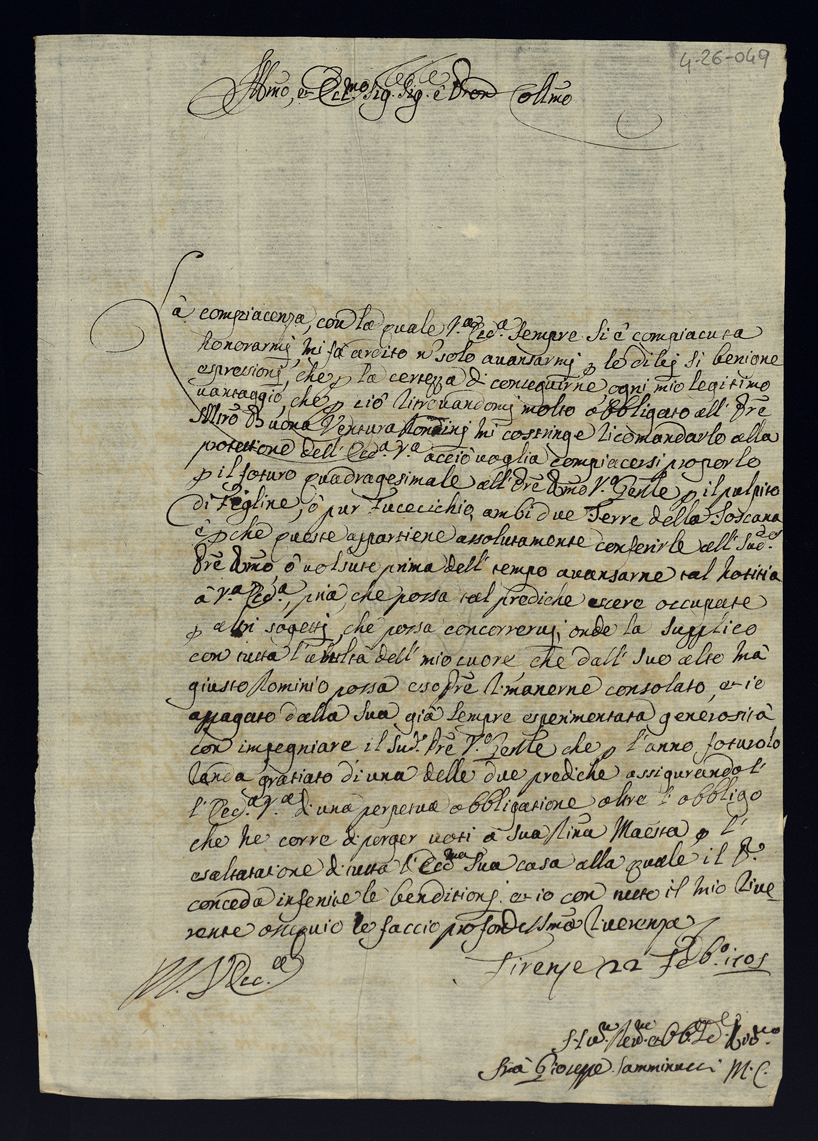 4-26-049
Illmo, et Ecc.mo Sig. Sig. e Pron Collmo
La compiacenza, con la quale V.a Ecc.a sempre si è compiaciuta
honorarmi, mi fà ardito nõ solo avansarmi ꝑ le di lei si benigne
espressioni, che ꝑ la certezza di conseguirne ogni mio legitimo
vantaggio, che ꝑ ciò ritrovandomi molto obbligato all' Pre
Mro Buona Ventura mi costringe ricomandarlo alla
potettione dell' Ecc.a V.a acciò voglia compiacersi proporlo
ꝑ il foturo quadragesimale all' Pre Rmo V.o Gñle ꝑ il pulpito
di Figline, ò pur Fucecichio, ambi due Terre della Toscana
è ꝑ che queste appartiene assolutamente conferirle all' Sud.o
Pre Rmo ò volsuto prima dell' tempo avansarne tal notitia
à V.a Ecc.a, pria, che possa tal prediche essere occupate
ꝑ altri sogetti, che possa concorrervi, onde la supplico
con tutta l' dell' mio cuore che dall' suo alto mà
giusto Dominio possa esso Pre rimanerne consolato, et io
appagato dalla sua già sempre esperimentata generosità
con impegniare il Sud.o Pre V.o Gñle che ꝑ l' anno foturo lo
renda gratiato di una delle due prediche assigurando l'
l' Ecc.a V.a di una perpetua obbligatione oltre l' obbligo
che ne corre di porger voti à Sua Maestà ꝑ l'
esaltatione di tutta l' Ecc.ma Sua casa alla quale il S.r
conceda infenite le benditioni et io con tutto il mio rive-
rente ossequio le faccio profondissima riverenza
Di V. Ecc.a Firenze 22 Feb.o 1705
Hu.mo Dev.mo et Obb.mo Ser.
Frà Gioseppe Samminucci M.C.